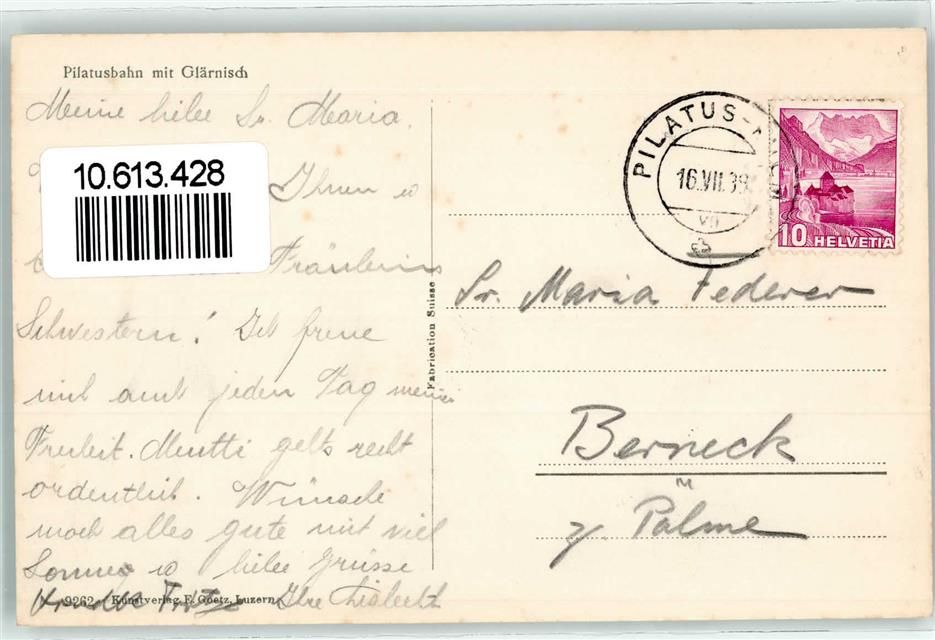 Pilatusbahn mit Glärnisch
Meine liebe Sr. Maria.
10.613.428
Ihnen
Fräuleins
Schwestern! Ich freue
mich auch jeden Tag meiner
Freiheit. Mutti gehts recht
ordentlich. Wünsche
noch alles gute mit viel
Sonne liebe Grüsse
Ihre Liesbeth
9262 - Kunstverlag E. Goetz, Luzern
Fabrication Suisse
PILATUS-KULM
16.VII.39
VII
10 HELVETIA
Sr. Maria Federer
Berneck
z. Palme